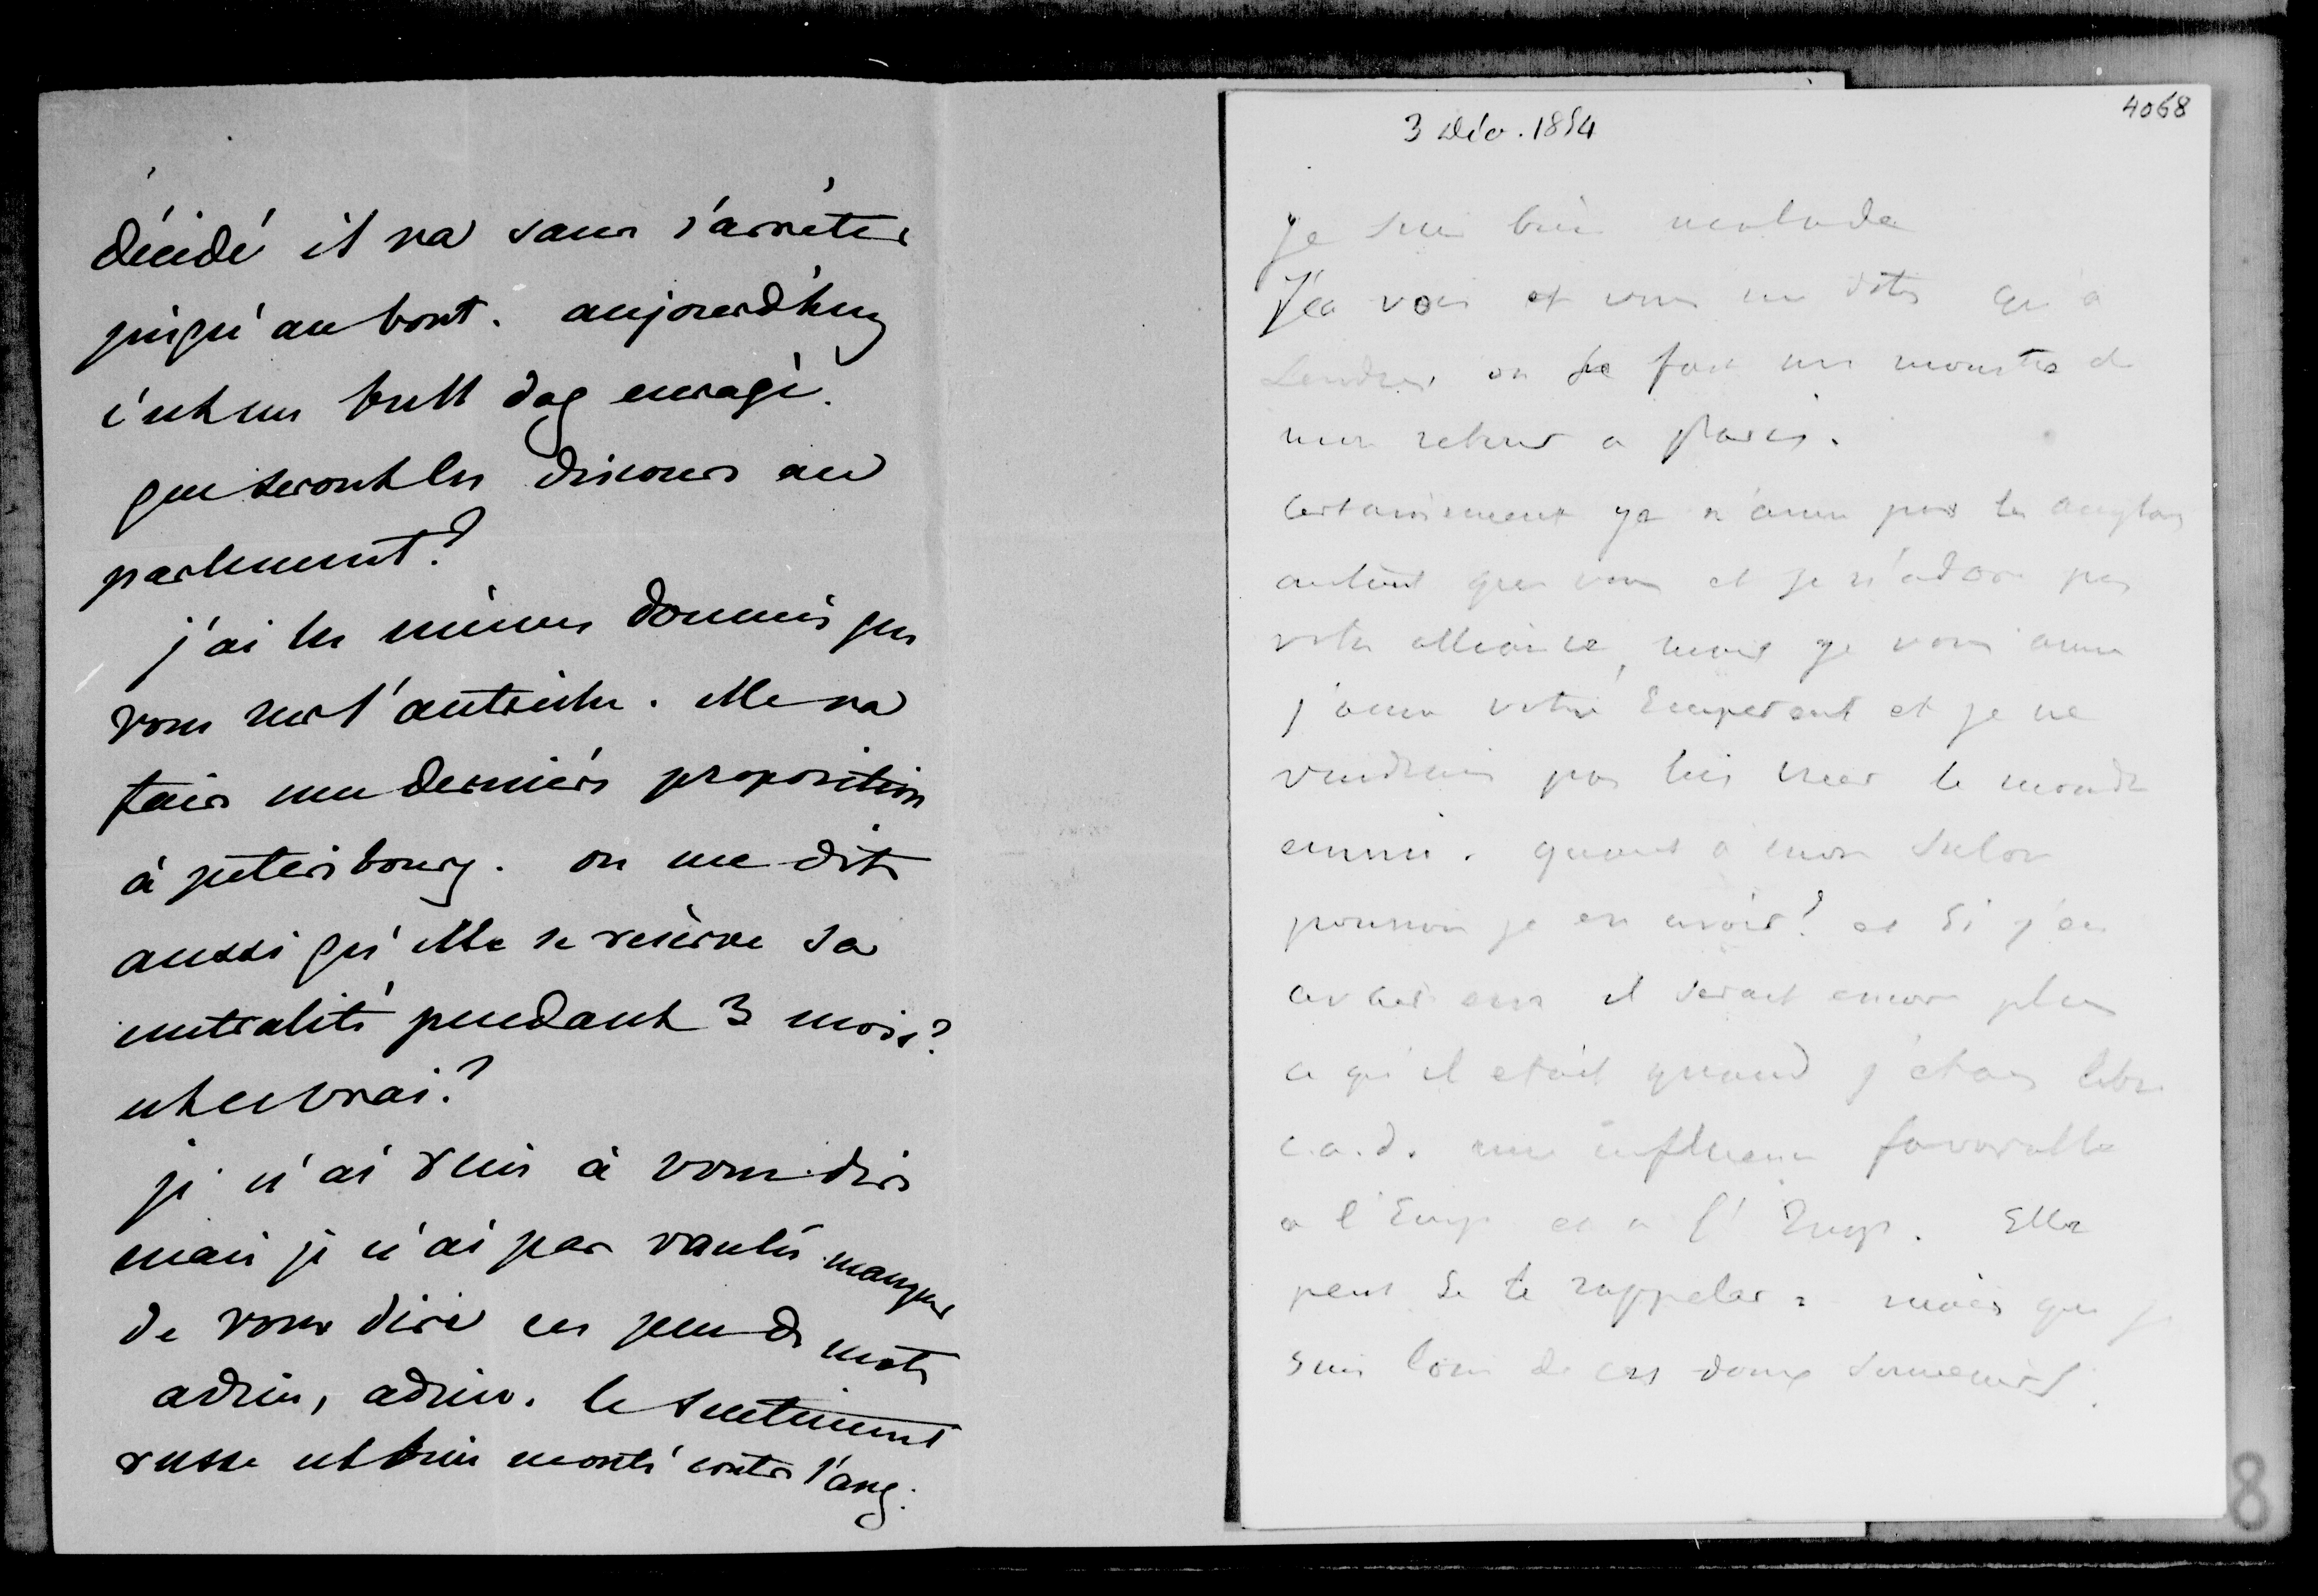 décidé il va sans s'arrêter
jusqu'au bout. aujourd'huy
c'est un bull dog enragé.
que seront les discours au
parlement?
j'ai les mêmes données que
vous sur l'autriche. Elle va
faire une dernière proposition
à petersbourg. on me dit
aussi qu'elle se réserve sa
neutralité pendant 3 mois?
est ce vrai?
je n'ai rien à vous dire
mais je n'ai pas voulu manquer
de vous dire ces peu de mots
adieu, adieu. le sentiment
russe est bien monté contre l'ang.
4068
3 Déc. 1854
Je suis bien malade
J'ai vois et vous me dites qu'a
Londres on se fait un monstre de
mon retour a Paris.
certainement je n'aime pas les anglais
autant que vous et je n'adore pas
votre alliance, mais je vous aime
j'aime votre Empereur et je ne
voudrais pas lui créer le moindre
ennui. quant a mon salon
pourrois je en avoir? et si j'en
avais un il serait encore plus
ce qu'il etait quand j'etais libre
c.a.d. une influence favorable
a l'Emp et a l'Imp. Elle
peut se le rappeler. mais que je
suis loin de ces doux souvenirs.
8